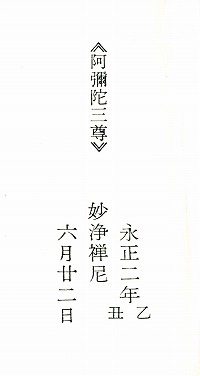 《阿彌陀三尊》
永正二年乙丑
妙浄禅尼
六月廿二日